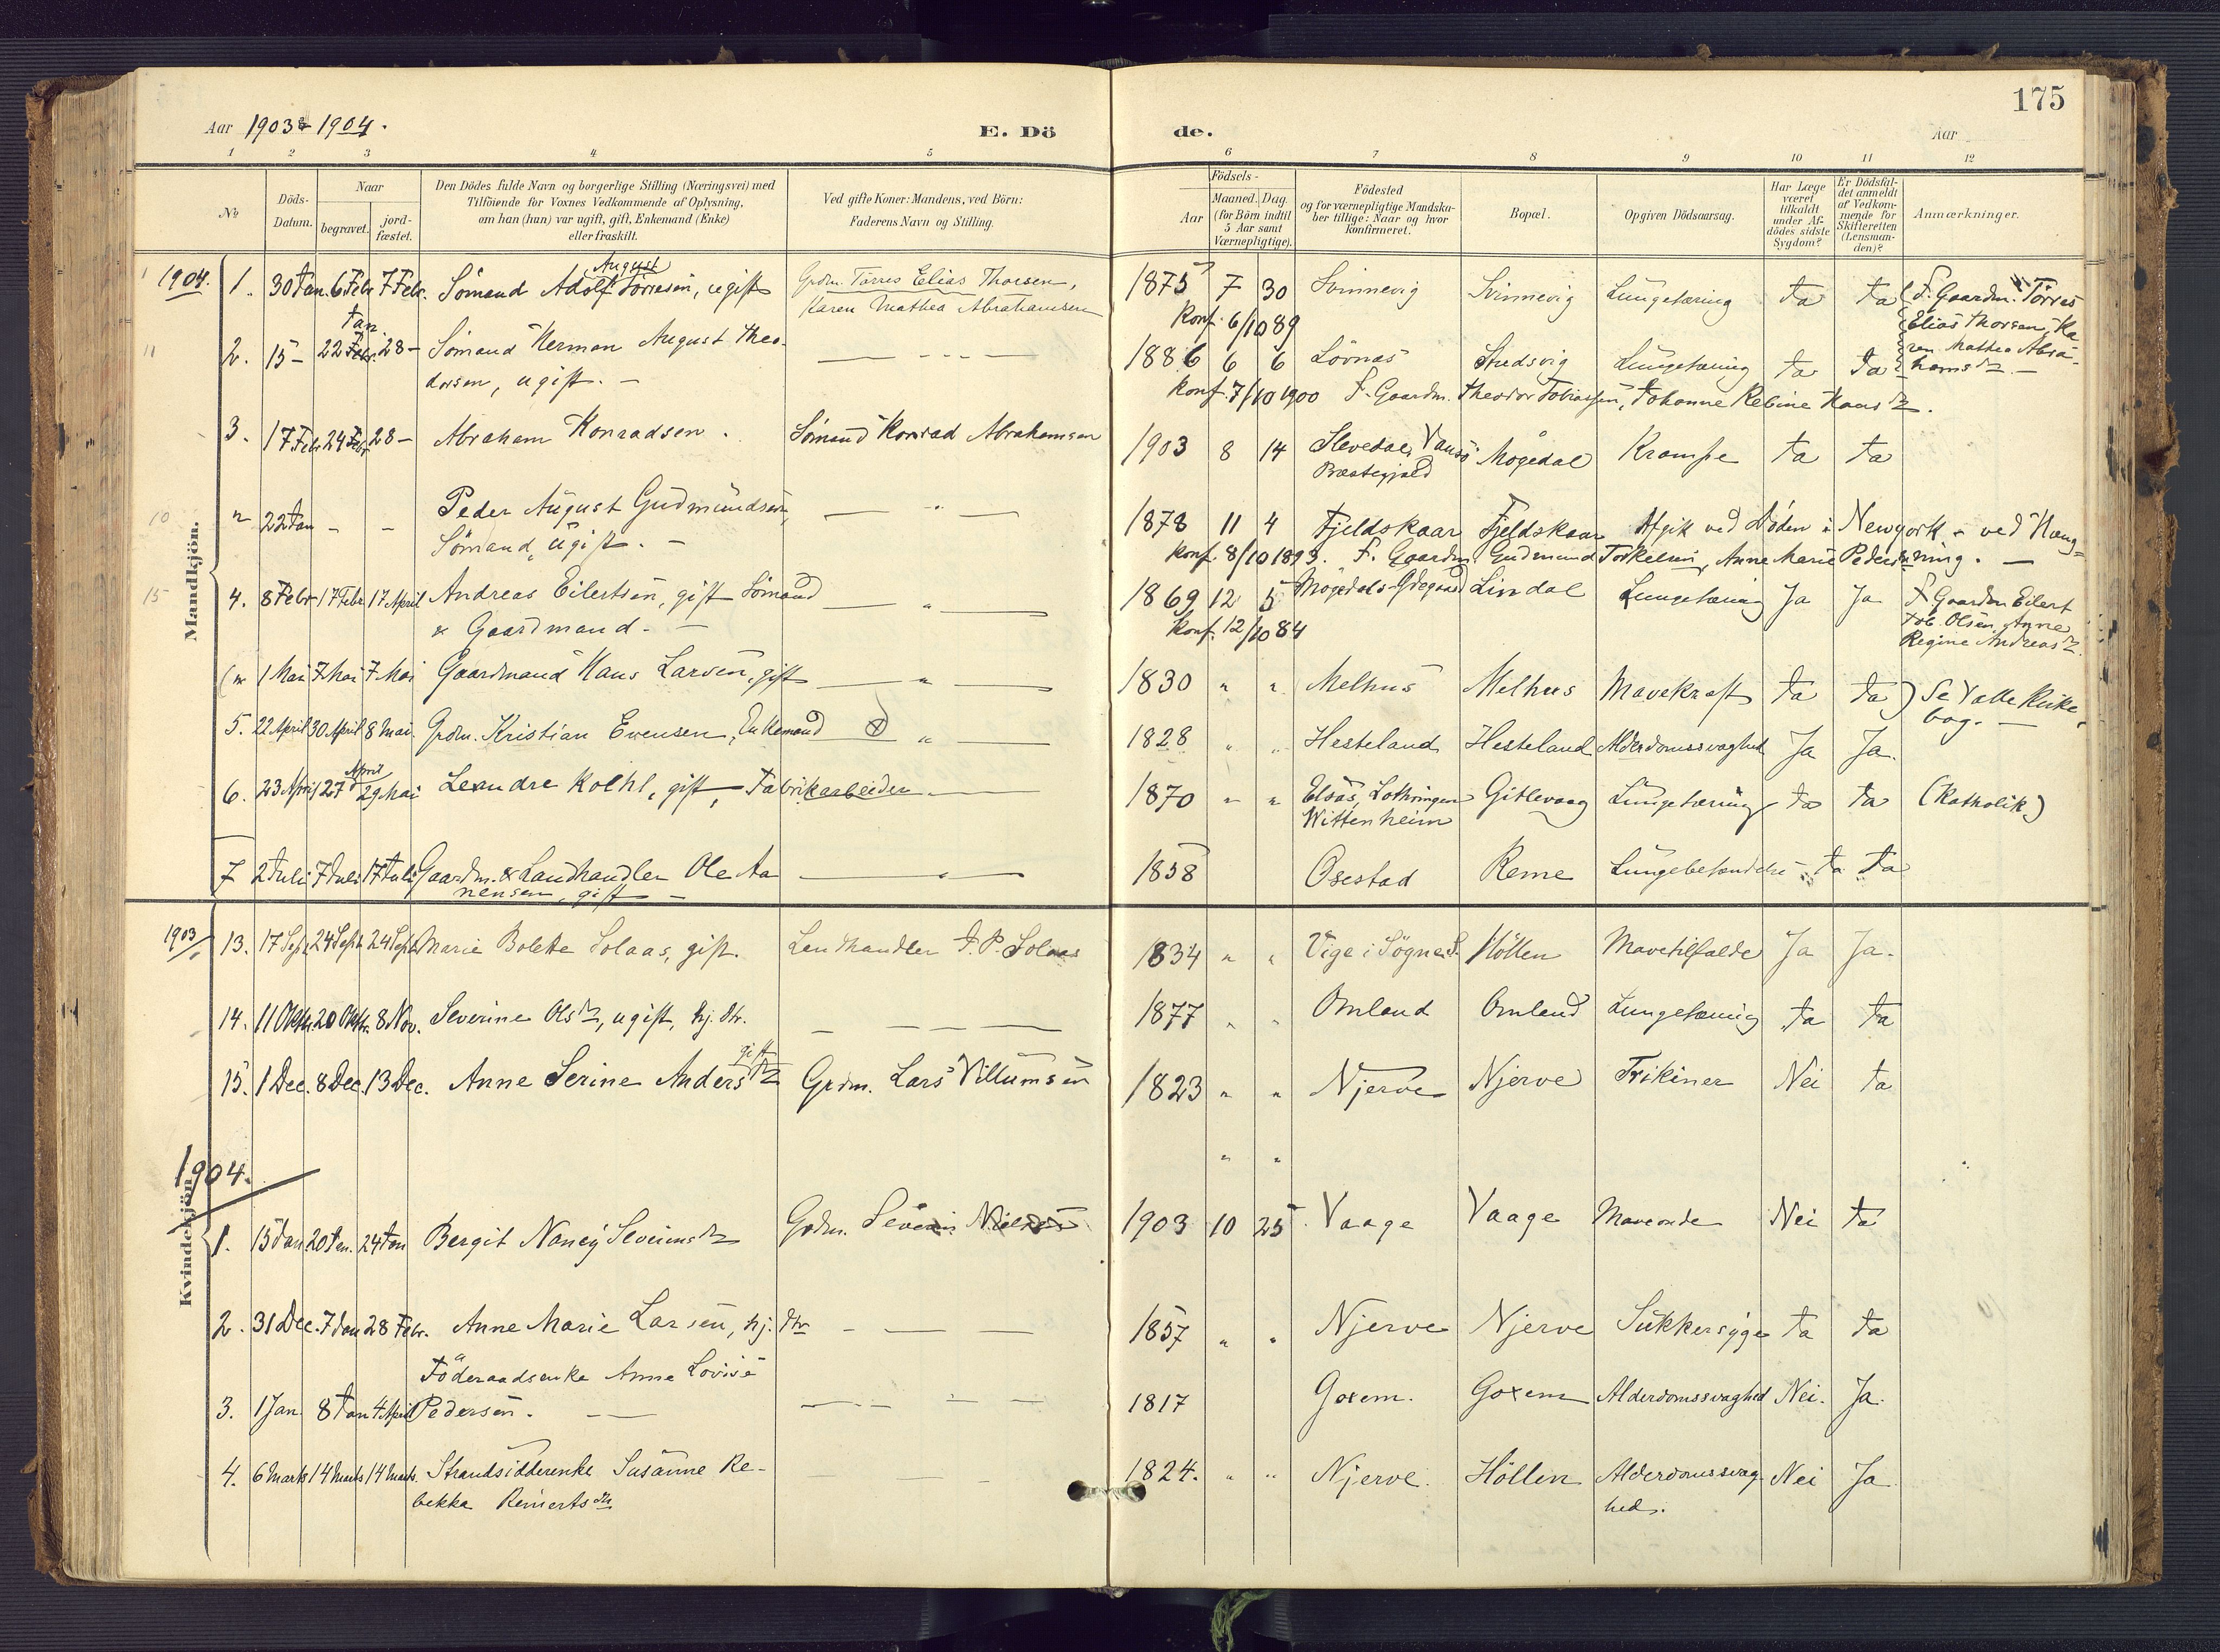 175
Aar 1903 & 1904.
E. Dö
de.
Aar
1 2 3 4 5 6 7 8 9 10 11 12
№
Döds-
Datum.
Naar
begravet.
jord-
fæstet.
Den Dödes fulde Navn og borgerlige Stilling (Næringsvei) med
Tilföiende for Voxnes Vedkommende af Oplysning,
om han (hun) var ugift, gift, Enkemand (Enke)
eller fraskilt.
Ved gifte Koner: Mandens, ved Börn:
Faderens Navn og Stilling.
Födsels-
Aar
Maaned. Dag.
(for Börn indtil
5 Aar samt
Værnepligtige).
Födested
og for værnepligtige Mandska-
ber tillige: Naar og hvor
konfirmeret.
Bopæl.
Opgiven Dödsaarsag.
Har Læge
været
tilkaldt
under Af-
dödes sidste
Sygdom?
Er Dödsfal-
det anmeldt
af Vedkom-
mende for
Skifteretten
(Lensman-
den)?
Anmærkninger.
Mandkjön.
1904. 1. 30 Jan. 6 Febr 7 Febr. Sömand Adolf August Törresen, ugift Grdm. Törres Elias Thorsen, 1875 7 30 Svinnevig Svinnevig Lungetæring Ja Ja F. Gaardm. Törres
Karen Mathea Abrahamsen Konf. 6/10 89 Elias Thorsen, Ka
ren Mathea Abra-
hamsdtr. -
2. 15 - 22 Jan 28 - Sömand Herman August Theo- 1886 6 6 Lövnes Studsvig Lungetæring Ja Ja
dorsen, ugift. - Konf. 7/10 1900 F. Gaardm. Theodor Tobiassen, Johanne Rebine Hansdtr.
3. 17 Febr 24 Febr 28 - Abraham Konradsen. Sömand Konrad Abrahamsen 1903 8 14 Vanse Mögedal Krampe Ja Ja
Præstegjeld
" 22 Jan - - Peder August Gudmundsen, 1878 11 4 Fjeldskaar Fjeldskaar Afgik ved Döden i Newyork - ved Hæng-
Sömand, ugift. - Konf. 8/10 1893. F. Gaardm. Gudmund Torkelsen, Anne Marie Pedersdtr. ning. -
4. 8 Febr 17 Febr 17 April Andreas Eilertsen, gift Sömand 1869 12 5 Mögedals-Ödegaard Lindal Lungetæring Ja Ja F Gaardm Eilert
& Gaardmand. - Konf. 12/10 84 Tob. Olsen, Anne
Regine Andreasdtr.
(" 1 Mai 7 Mai 7 Mai Gaardmand Hans Larsen, gift 1830 " " Melhus Melhus Mavekræft Ja Ja) Se Valle Kirke-
bog. -
5. 22 April 30 April 8 Mai. Grdm. Kristian Evensen, Enkemand 1828 " " Hesteland Hesteland Alderdomssvaghed Ja Ja.
6. 23 April 27 April 29 Mai Leandre Kolhl, gift, Fabrikarbeider 1870 " " Elsas, Lothringen Gitlevaag Lungetæring Ja Ja (Katholik)
Wittenheim
7 2 Juli 7 Juli 17 Juli Gaardm. & Landhandler Ole Aa 1858 Osestad Reme Lungebetændelse Ja Ja
nensen, gift -
1903 13. 17 Sept 24 Sept 24 Sept Marie Bolette Solaas, gift. Landhandler J. P. Solaas 1834 " " Vige i Sögne S. Höllen Mavetilfælde Ja Ja.
14. 11 Oktbr. 20 Oktbr. 8 Nov. Severine Olsdtr, ugift, hj. dtr. 1877 " " Omland Omland Lungetæring Ja Ja
15. 1 Dec. 8 Dec. 13 Dec. Anne Serine Andersdtr gift Grdm. Lars Villumsen 1823 " " Njerve Njerve Trikiner Nei Ja
" "
1904.
Kvindekjön
1. 15 Jan 20 Jan. 24 Jan Bergit Nancy Severinsdtr Grdm. Severin Nielsen 1903 10 25 Vaage Vaage Maveonde Nei Ja
2. 31 Dec. 7 Jan 28 Febr. Anne Marie Larsen, hj. dtr 1857 " " Njerve Njerve Sukkersyge Ja Ja
Föderaadsenke Anne Lovise
3. 1 Jan 8 Jan 4 April Pedersen. 1817 Goxem. Goxem Alderdomssvaghed Nei. Ja.
4. 6 Marts 14 Marts 14 Marts. Strandsidderenke Susanne Re- 1824. " " Njerve. Höllen Alderdomssvag- Nei Ja
bekka Reinertsdtr hed.